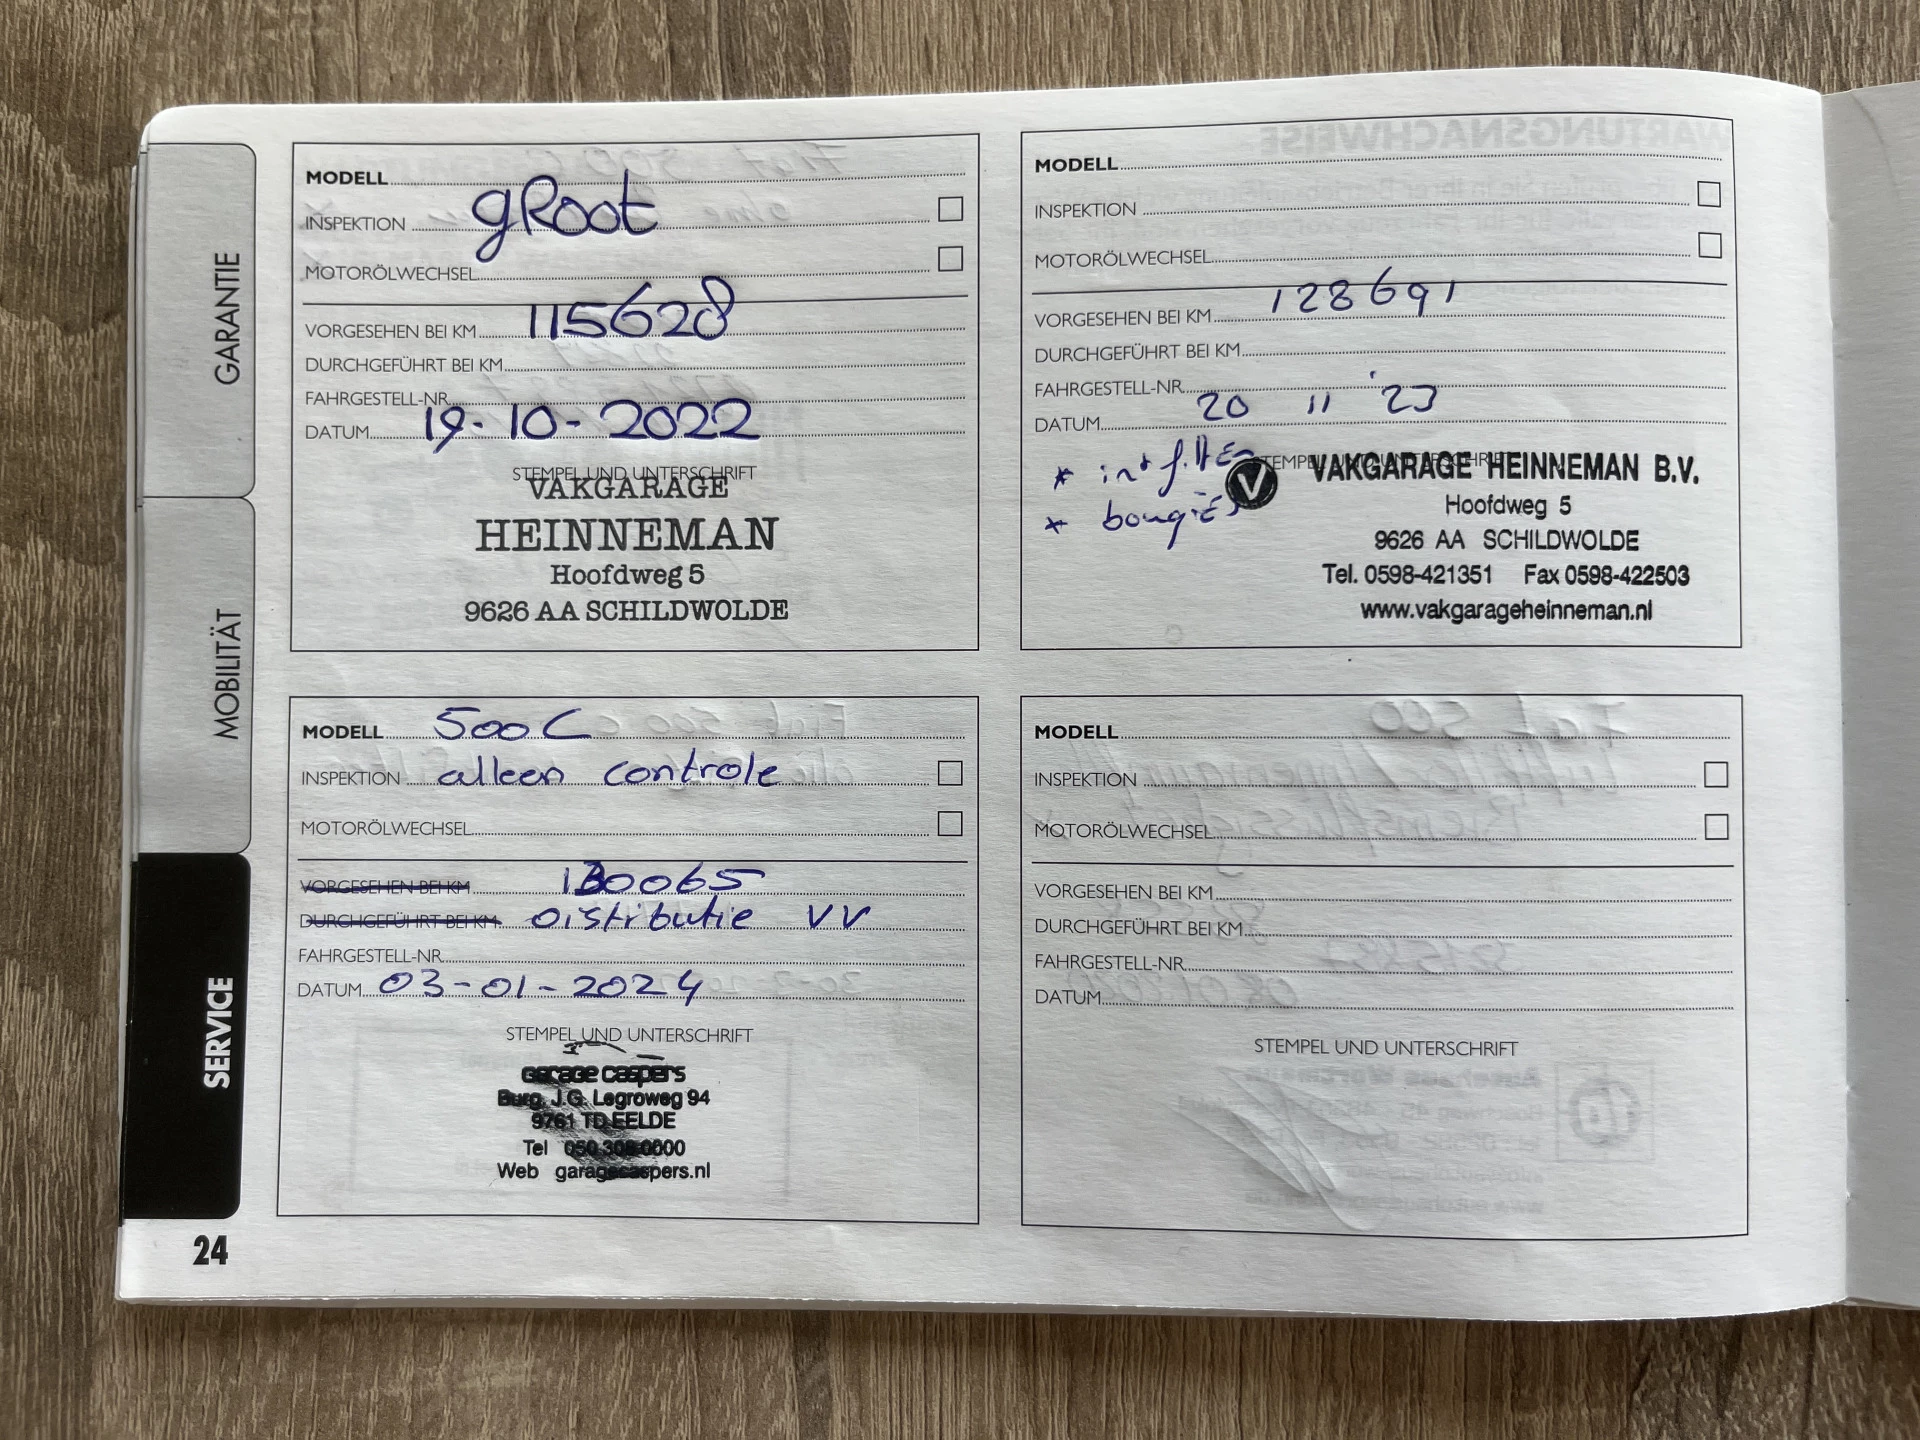 GARANTIE
MOBILITÄT
SERVICE
MODELL
INSPEKTION gRoot
MOTORÖLWECHSEL
VORGESEHEN BEI KM 115628
DURCHGEFÜHRT BEI KM
FAHRGESTELL-NR.
DATUM 19-10-2022
STEMPEL UND UNTERSCHRIFT
VAKGARAGE
HEINNEMAN
Hoofdweg 5
9626 AA SCHILDWOLDE
MODELL
INSPEKTION
MOTORÖLWECHSEL
VORGESEHEN BEI KM 128691
DURCHGEFÜHRT BEI KM
FAHRGESTELL-NR.
DATUM 20 11 '23
STEMPEL UND UNTERSCHRIFT
* int filter
* bougies
V VAKGARAGE HEINNEMAN B.V.
Hoofdweg 5
9626 AA SCHILDWOLDE
Tel. 0598-421351 Fax 0598-422503
www.vakgarageheinneman.nl
MODELL 500C
INSPEKTION alleen controle
MOTORÖLWECHSEL
VORGESEHEN BEI KM 130065
DURCHGEFÜHRT BEI KM Distributie VV
FAHRGESTELL-NR.
DATUM 03-01-2024
STEMPEL UND UNTERSCHRIFT
garage caspers
Burg. J.G. Legroweg 94
9761 TD EELDE
Tel 050 308 0000
Web garagecaspers.nl
MODELL
INSPEKTION
MOTORÖLWECHSEL
VORGESEHEN BEI KM
DURCHGEFÜHRT BEI KM
FAHRGESTELL-NR.
DATUM
STEMPEL UND UNTERSCHRIFT
24